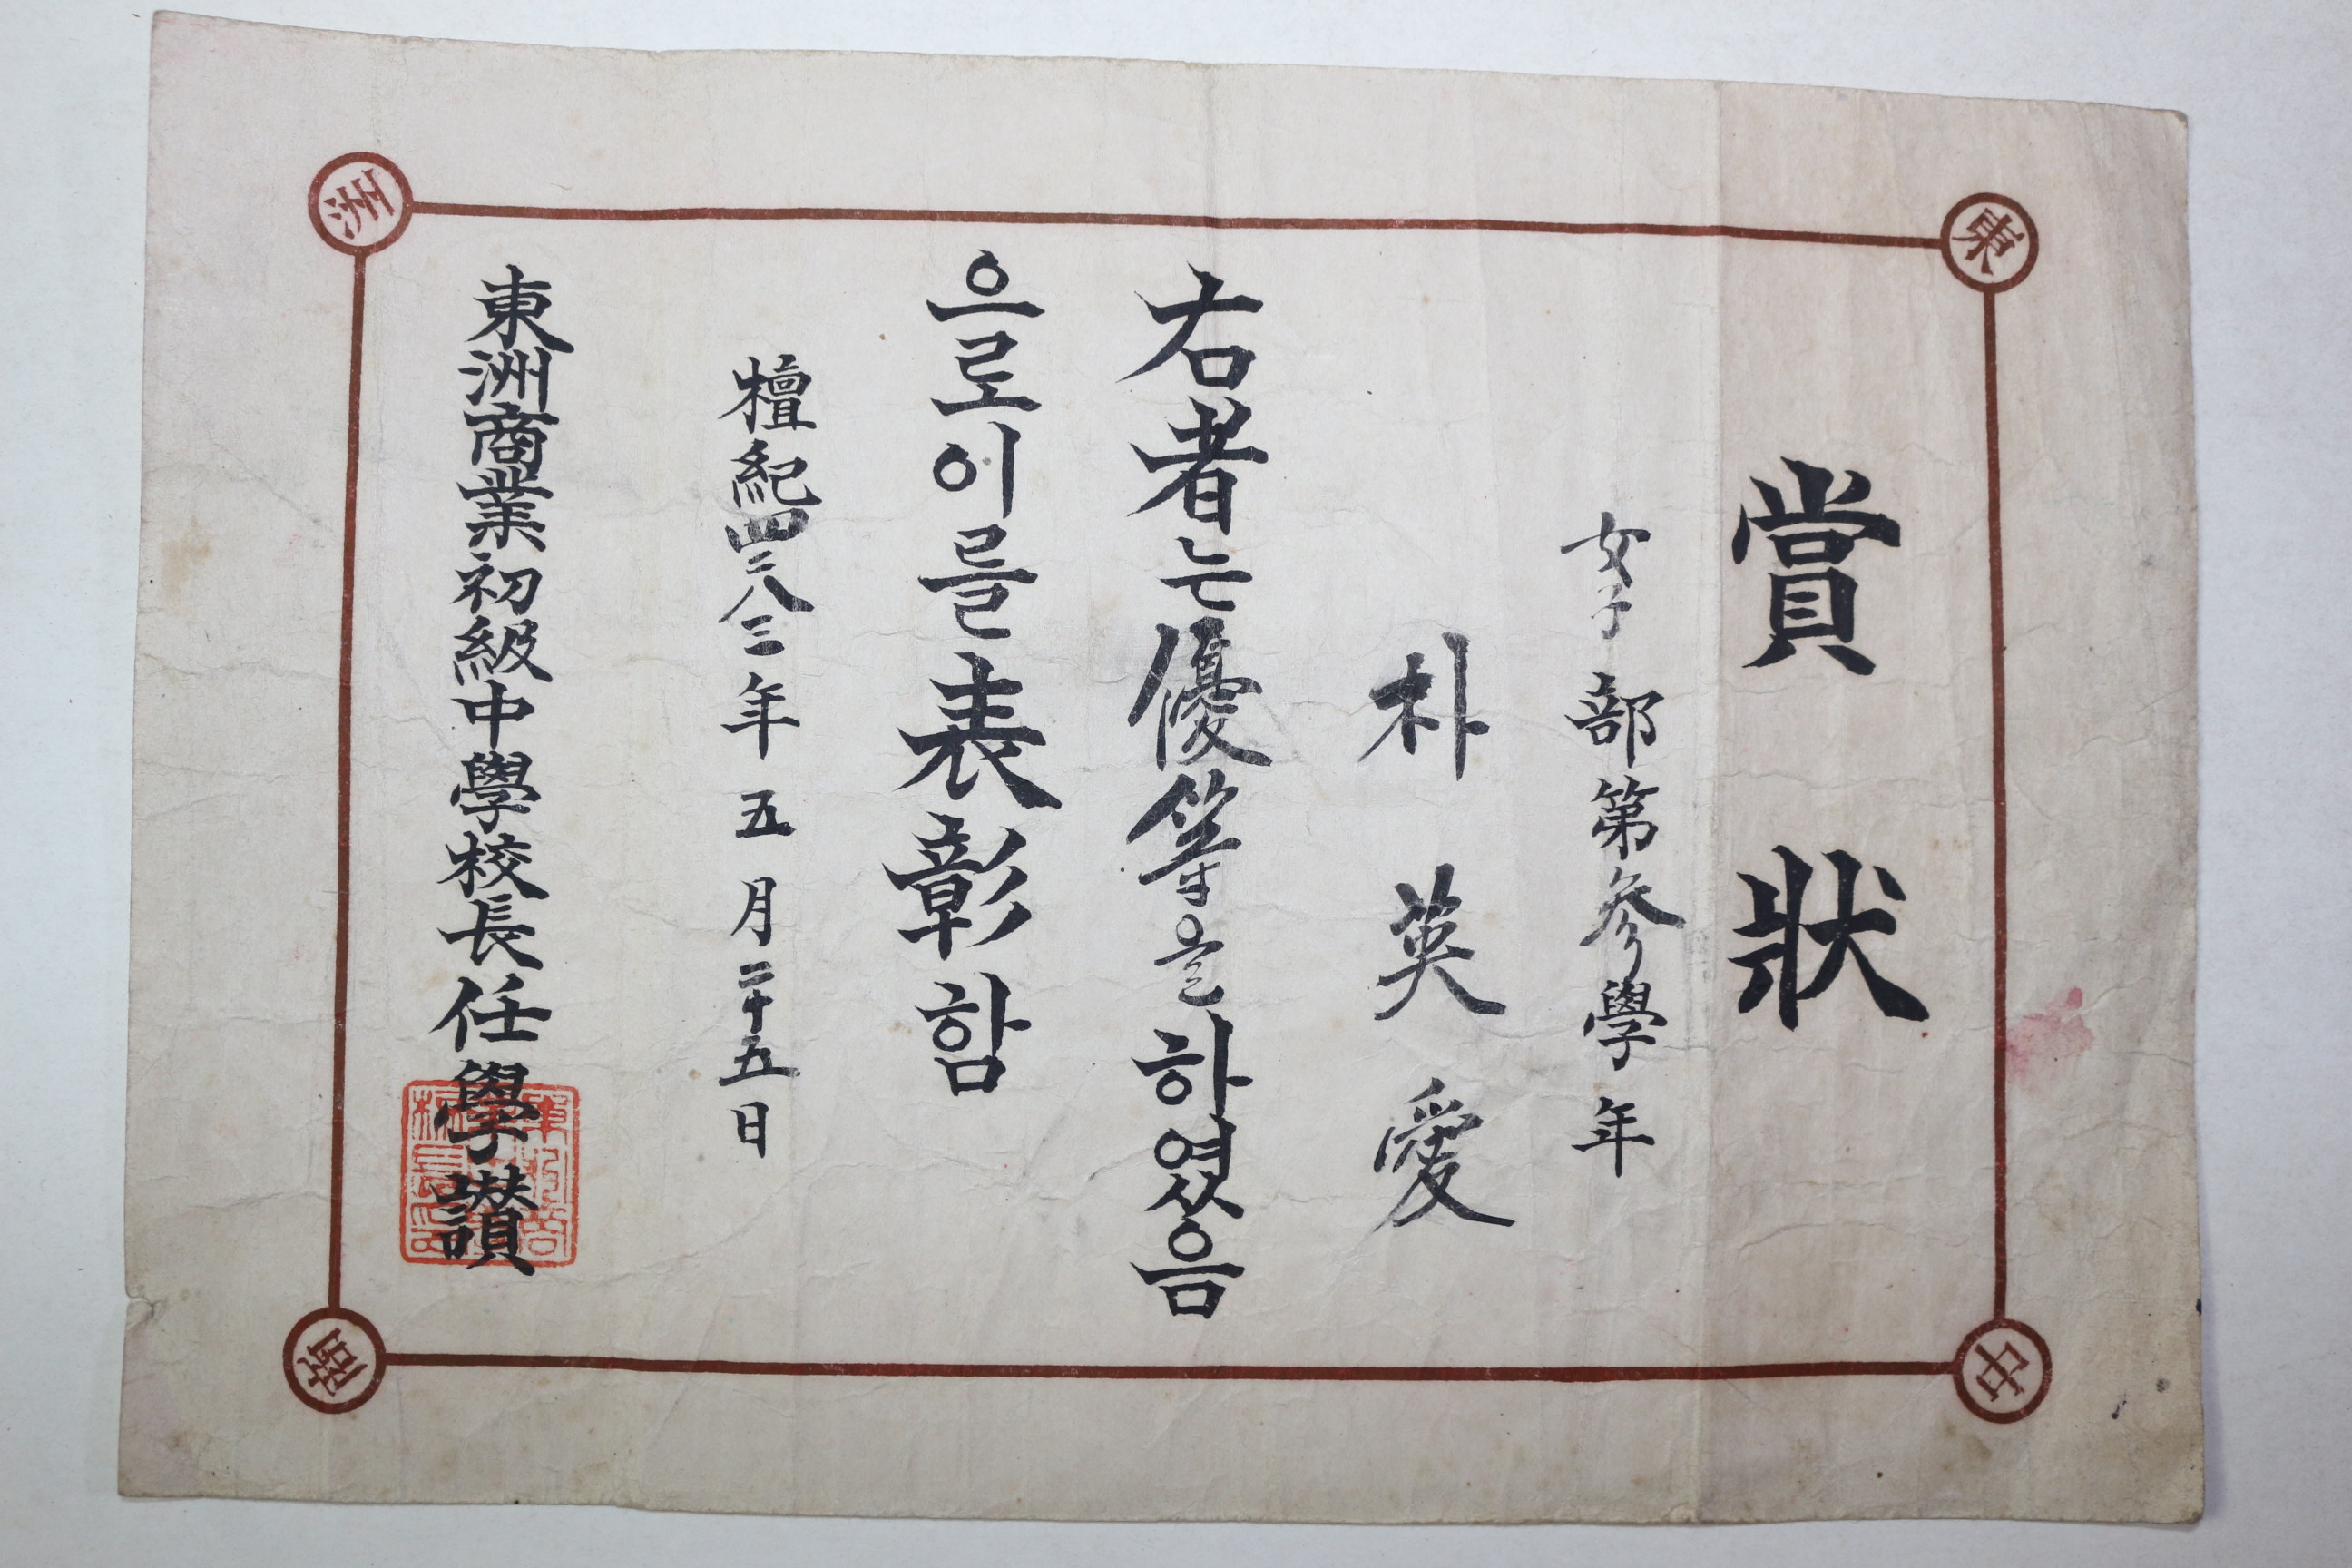 賞狀
女子部第参學年
朴英愛
右者는優等을하였음
으로이를表彰함
檀紀四二八三年五月二十五日
東洲商業初級中學校長任學讃
東
洲
中